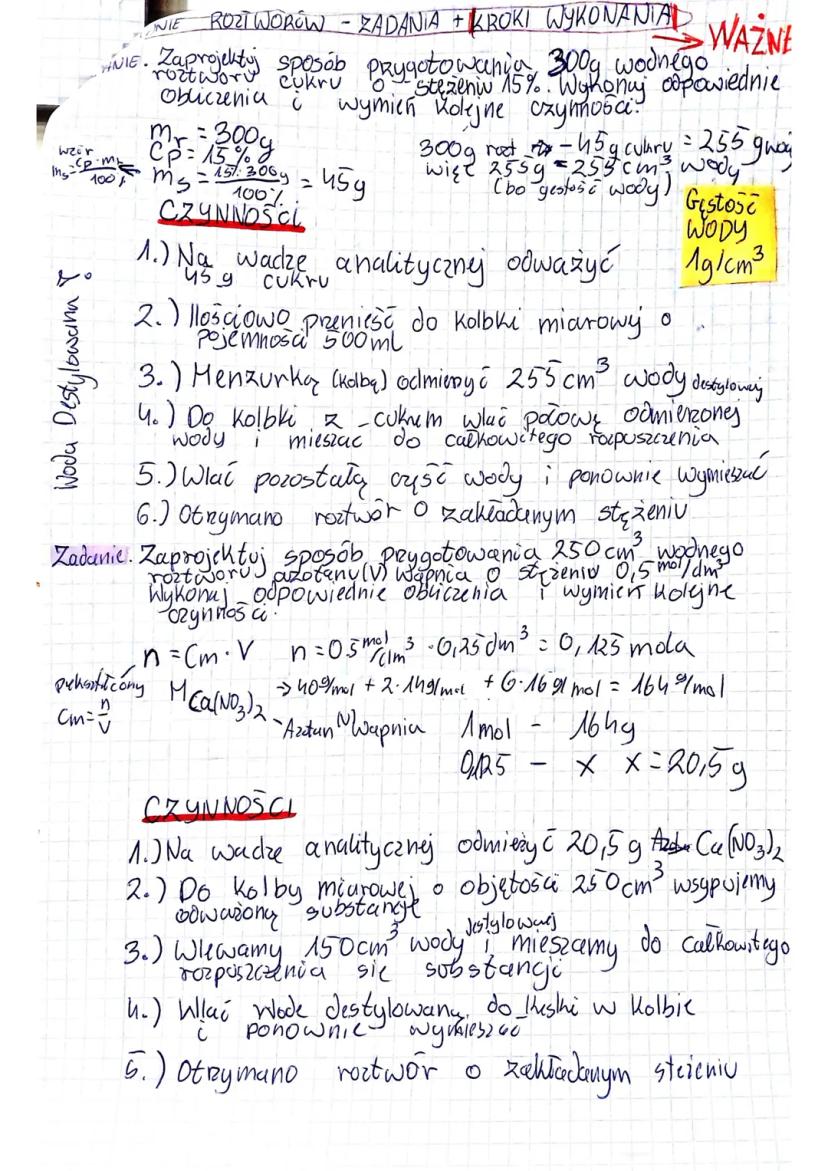 NIE ROZTWORÓW - ZADANIA + KROKI WYKONANIA
→ WAŻNE
ANIE. Zaprojektuj sposób przygotowania 300g wodnego
roztworu cukru o stężeniu 15%. Wykonaj odpowiednie
obliczenia i wymień kolejne czynności.
mr = 300g
Cp = 15%
wzór
ms = Cp·mr / 100%
ms = 15%·300g / 100% = 45g
300g rozt - 45g cukru = 255g wody
więc 255g = 255 cm³ wody
(bo gęstość wody)
Gęstość
WODY
1g/cm³
CZYNNOŚCI
1.) Na wadze analitycznej odważyć
45g cukru
2.) Ilościowo przenieść do kolbki miarowej o
pojemności 500ml
3.) Menzurką (kolbą) odmierzyć 255 cm³ wody destylowanej
4.) Do kolbki z cukrem wlać połowę odmierzonej
wody i mieszać do całkowitego rozpuszczenia
5.) Wlać pozostałą część wody i ponownie wymieszać
6.) Otrzymano roztwór o zakładanym stężeniu
Woda Destylowana
Zadanie. Zaprojektuj sposób przygotowania 250cm³ wodnego
roztworu azotanu(V) wapnia o stężeniu 0,5 mol/dm³
Wykonaj odpowiednie obliczenia i wymień kolejne
czynności.
n = Cm · V n = 0,5 mol/dm³ · 0,25dm³ = 0,125 mola
przekształcony
Cm = n/V
M Ca(NO₃)₂ → 40g/mol + 2·14g/mol + 6·16g/mol = 164g/mol
- Azotan (V) Wapnia
1mol - 164g
0,125 - x x = 20,5g
CZYNNOŚCI
1.) Na wadze analitycznej odmierzyć 20,5g Ca(NO₃)₂
2.) Do kolby miarowej o objętości 250cm³ wsypujemy
odważoną substancję
3.) Wlewamy 150cm³ wody destylowanej i mieszamy do całkowitego
rozpuszczenia się substancji
4.) Wlać wodę destylowaną do kreski w kolbie
i ponownie wymieszać
5.) Otrzymano roztwór o zakładanym stężeniu